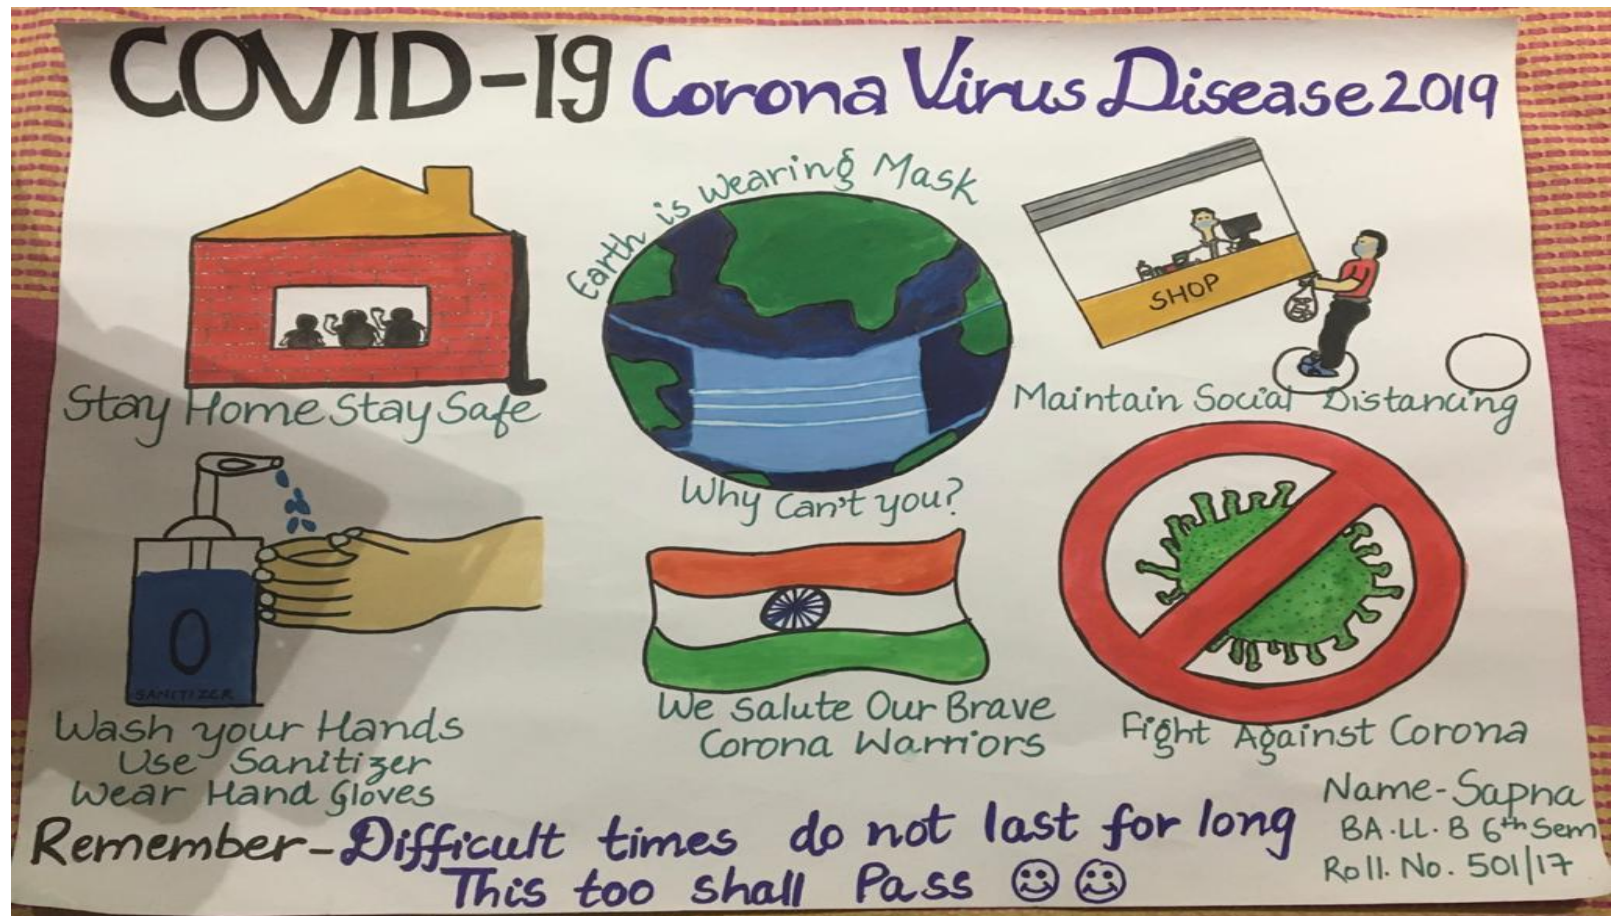 COVID-19 Corona Virus Disease 2019
Earth is Wearing Mask
SHOP
Stay Home Stay Safe
Maintain Social Distancing
Why Can't you?
SANITIZER
Wash your Hands
Use Sanitizer
Wear Hand Gloves
We Salute Our Brave
Corona Warriors
Fight Against Corona
Remember - Difficult times do not last for long
This too shall Pass
Name - Sapna
BA.LL.B 6th Sem
Roll. No. 501/17